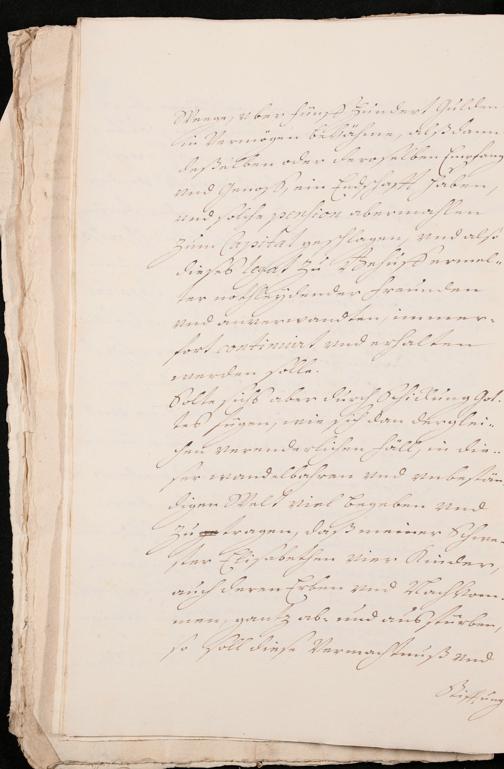 Weege, uber fünff Hundert Gulden
in Vermögen bekähme, alßdann
deßelben oder deroselben Empfang
und Genoß, ein Endschafft haben,
und solche pension abermahlen
zum Capital geschlagen, und also
dieses legat zu Behuff ermel-
ter nothleydender freunden
und anverwandten, immer-
fort continuirt und erhalten
werden solle.
Solte sichs aber durch Schickung Got-
tes fügen, wie sich dan derglei-
chen verenderlichen fäll, in die-
ser wandelbahren und unbestän-
digen Welt viel begeben und
zu tragen, daß meiner Schwe-
ster Elisabethen vier Kinder,
auch deren Erben und Nachkom-
men, gantz ab- und ausstürben,
so soll diese Vermachtnuß und
Stifftung